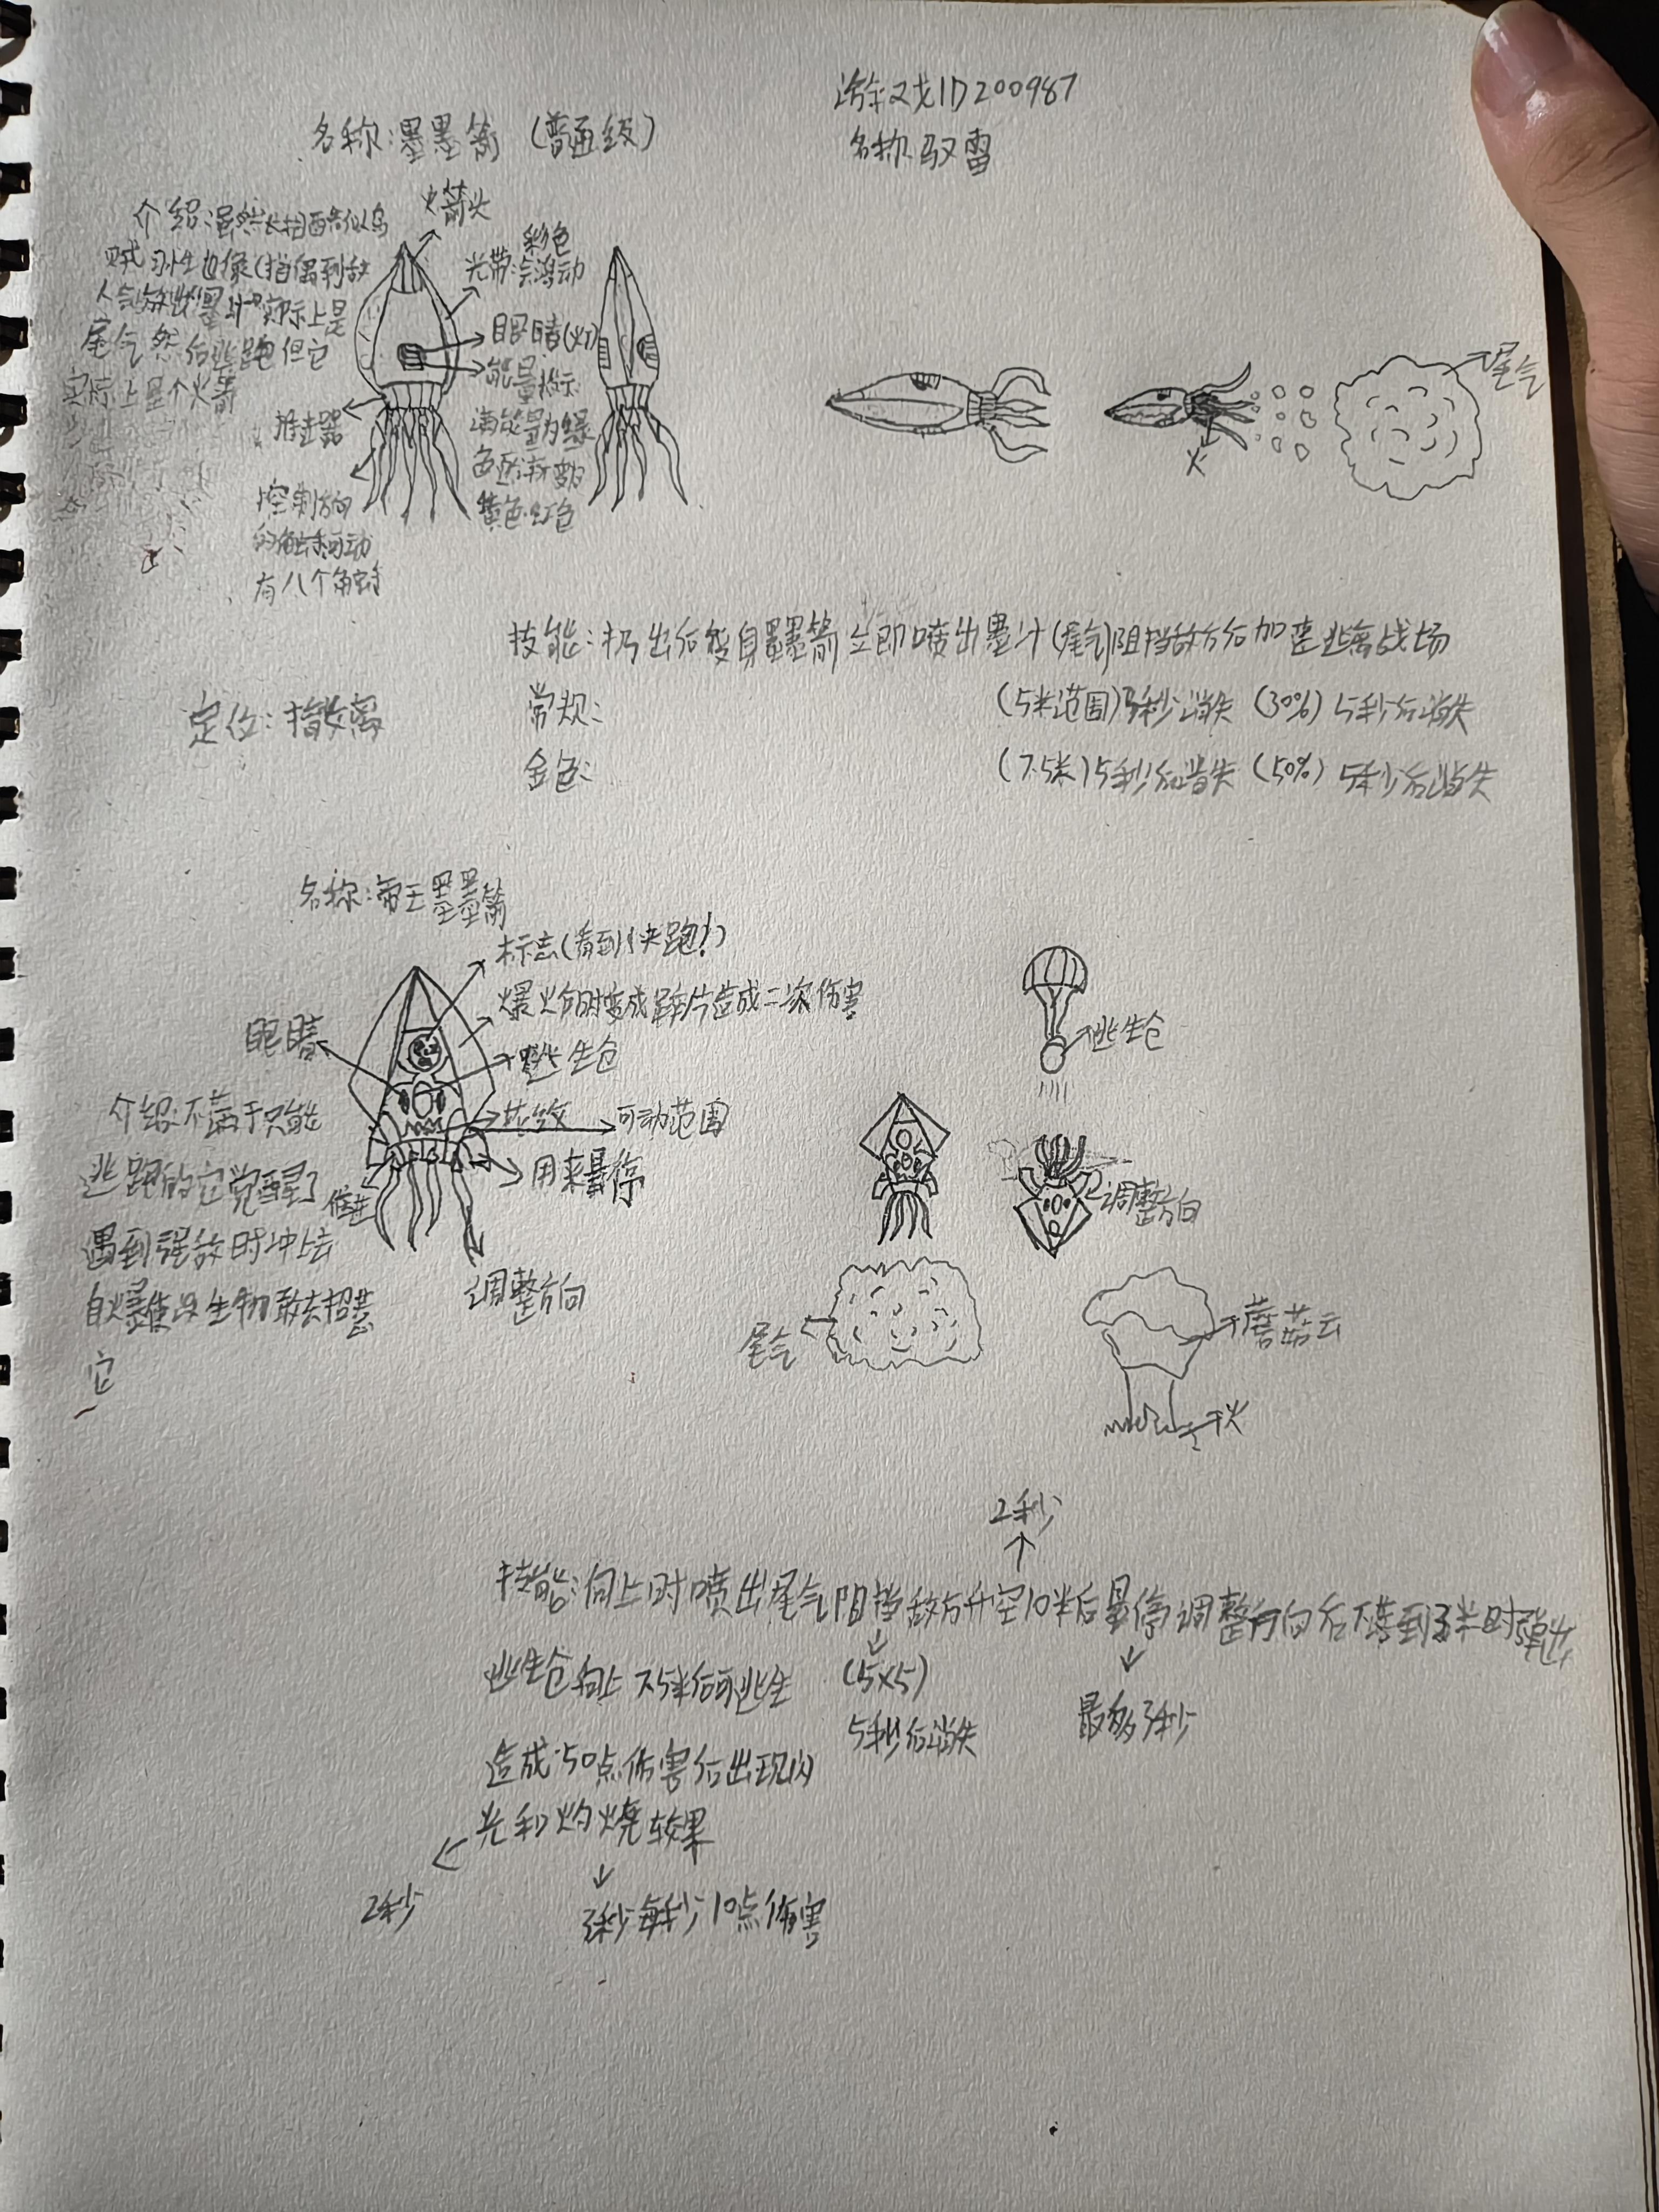 游戏ID200987
名称:驭雷
名称:墨墨箭(普通级)
介绍:虽然长相酷似乌
贼习性也像(指遇到敌
人气放出墨汁实际上是
尾气然后逃跑但它
实际上是个火箭
火箭头
彩色
光带:会滚动
眼睛(灯)
能量指示
满能量为绿
色逐渐变为
黄色.红色
推进器
控制方向
的触手可动
有八个
火
尾气
技能:扔出后变身墨墨箭立即喷出墨汁(尾气)阻挡敌方后加速逃离战场
常规:
(5米范围)3秒消失(30%)5秒后消失
定位:撤离
金色:
(7.5米)5秒后消失(50%)5秒后消失
名称:帝王墨墨箭
标志(看到快跑!)
爆炸时变成碎片造成二次伤害
眼睛
逃生仓
花纹
可动范围
用来悬停
推进
调整方向
介绍:不满于只能
逃跑的它觉醒了
遇到强敌时冲上去
自爆难没生物敢去招惹
它
逃生仓
调整方向
尾气
蘑菇云
火
2秒
技能:向上时喷出尾气阻挡敌方升空10米后悬停调整方向后下落到3米时弹出
逃生仓向上7.5米后可逃生
(5×5)
5秒后消失
最多3秒
造成:50点伤害后出现闪
光和灼烧效果
2秒
3秒每秒10点伤害